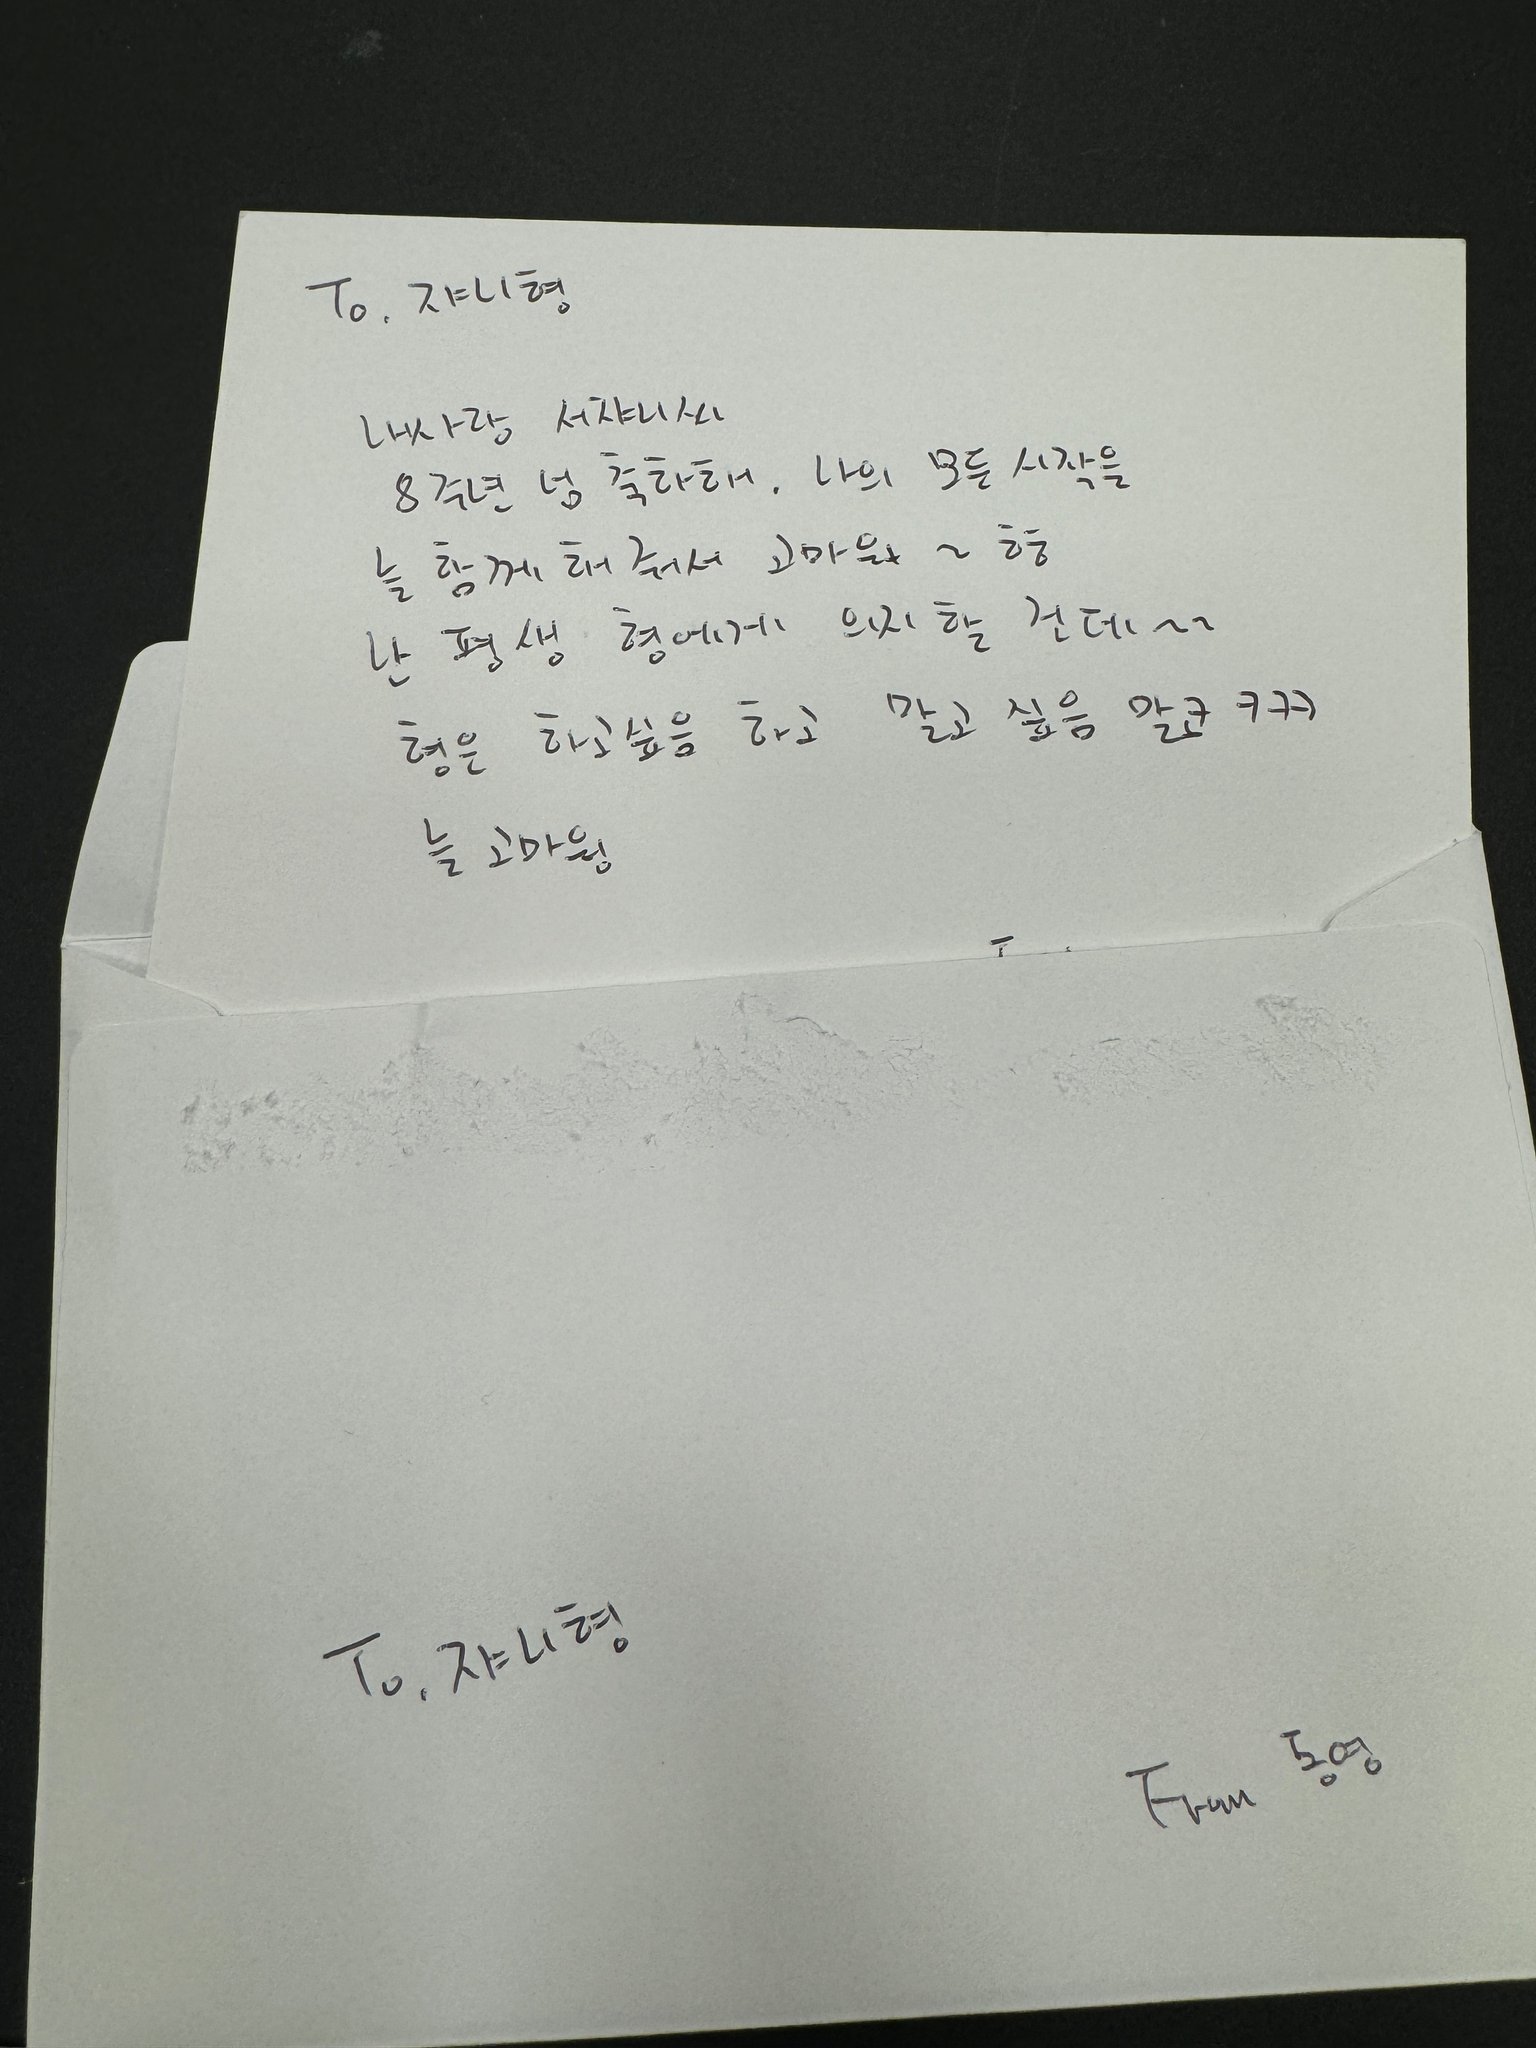 To.쟈니형
내사랑 서쟈니씨
8주년 넘 축하해. 나의 모든 시작을
늘 함께해줘서 고마워 ~ 형
난 평생 형에게 의지할 건데~~
형은 하고싶음 하고 말고 싶음 말코 ㅋㅋㅋ
늘 고마웡
To. 쟈니형
From 동영